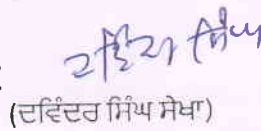 ਦਵਿੰਦਰ ਸਿੰਘ
(ਦਵਿੰਦਰ ਸਿੰਘ ਸੇਖਾ)